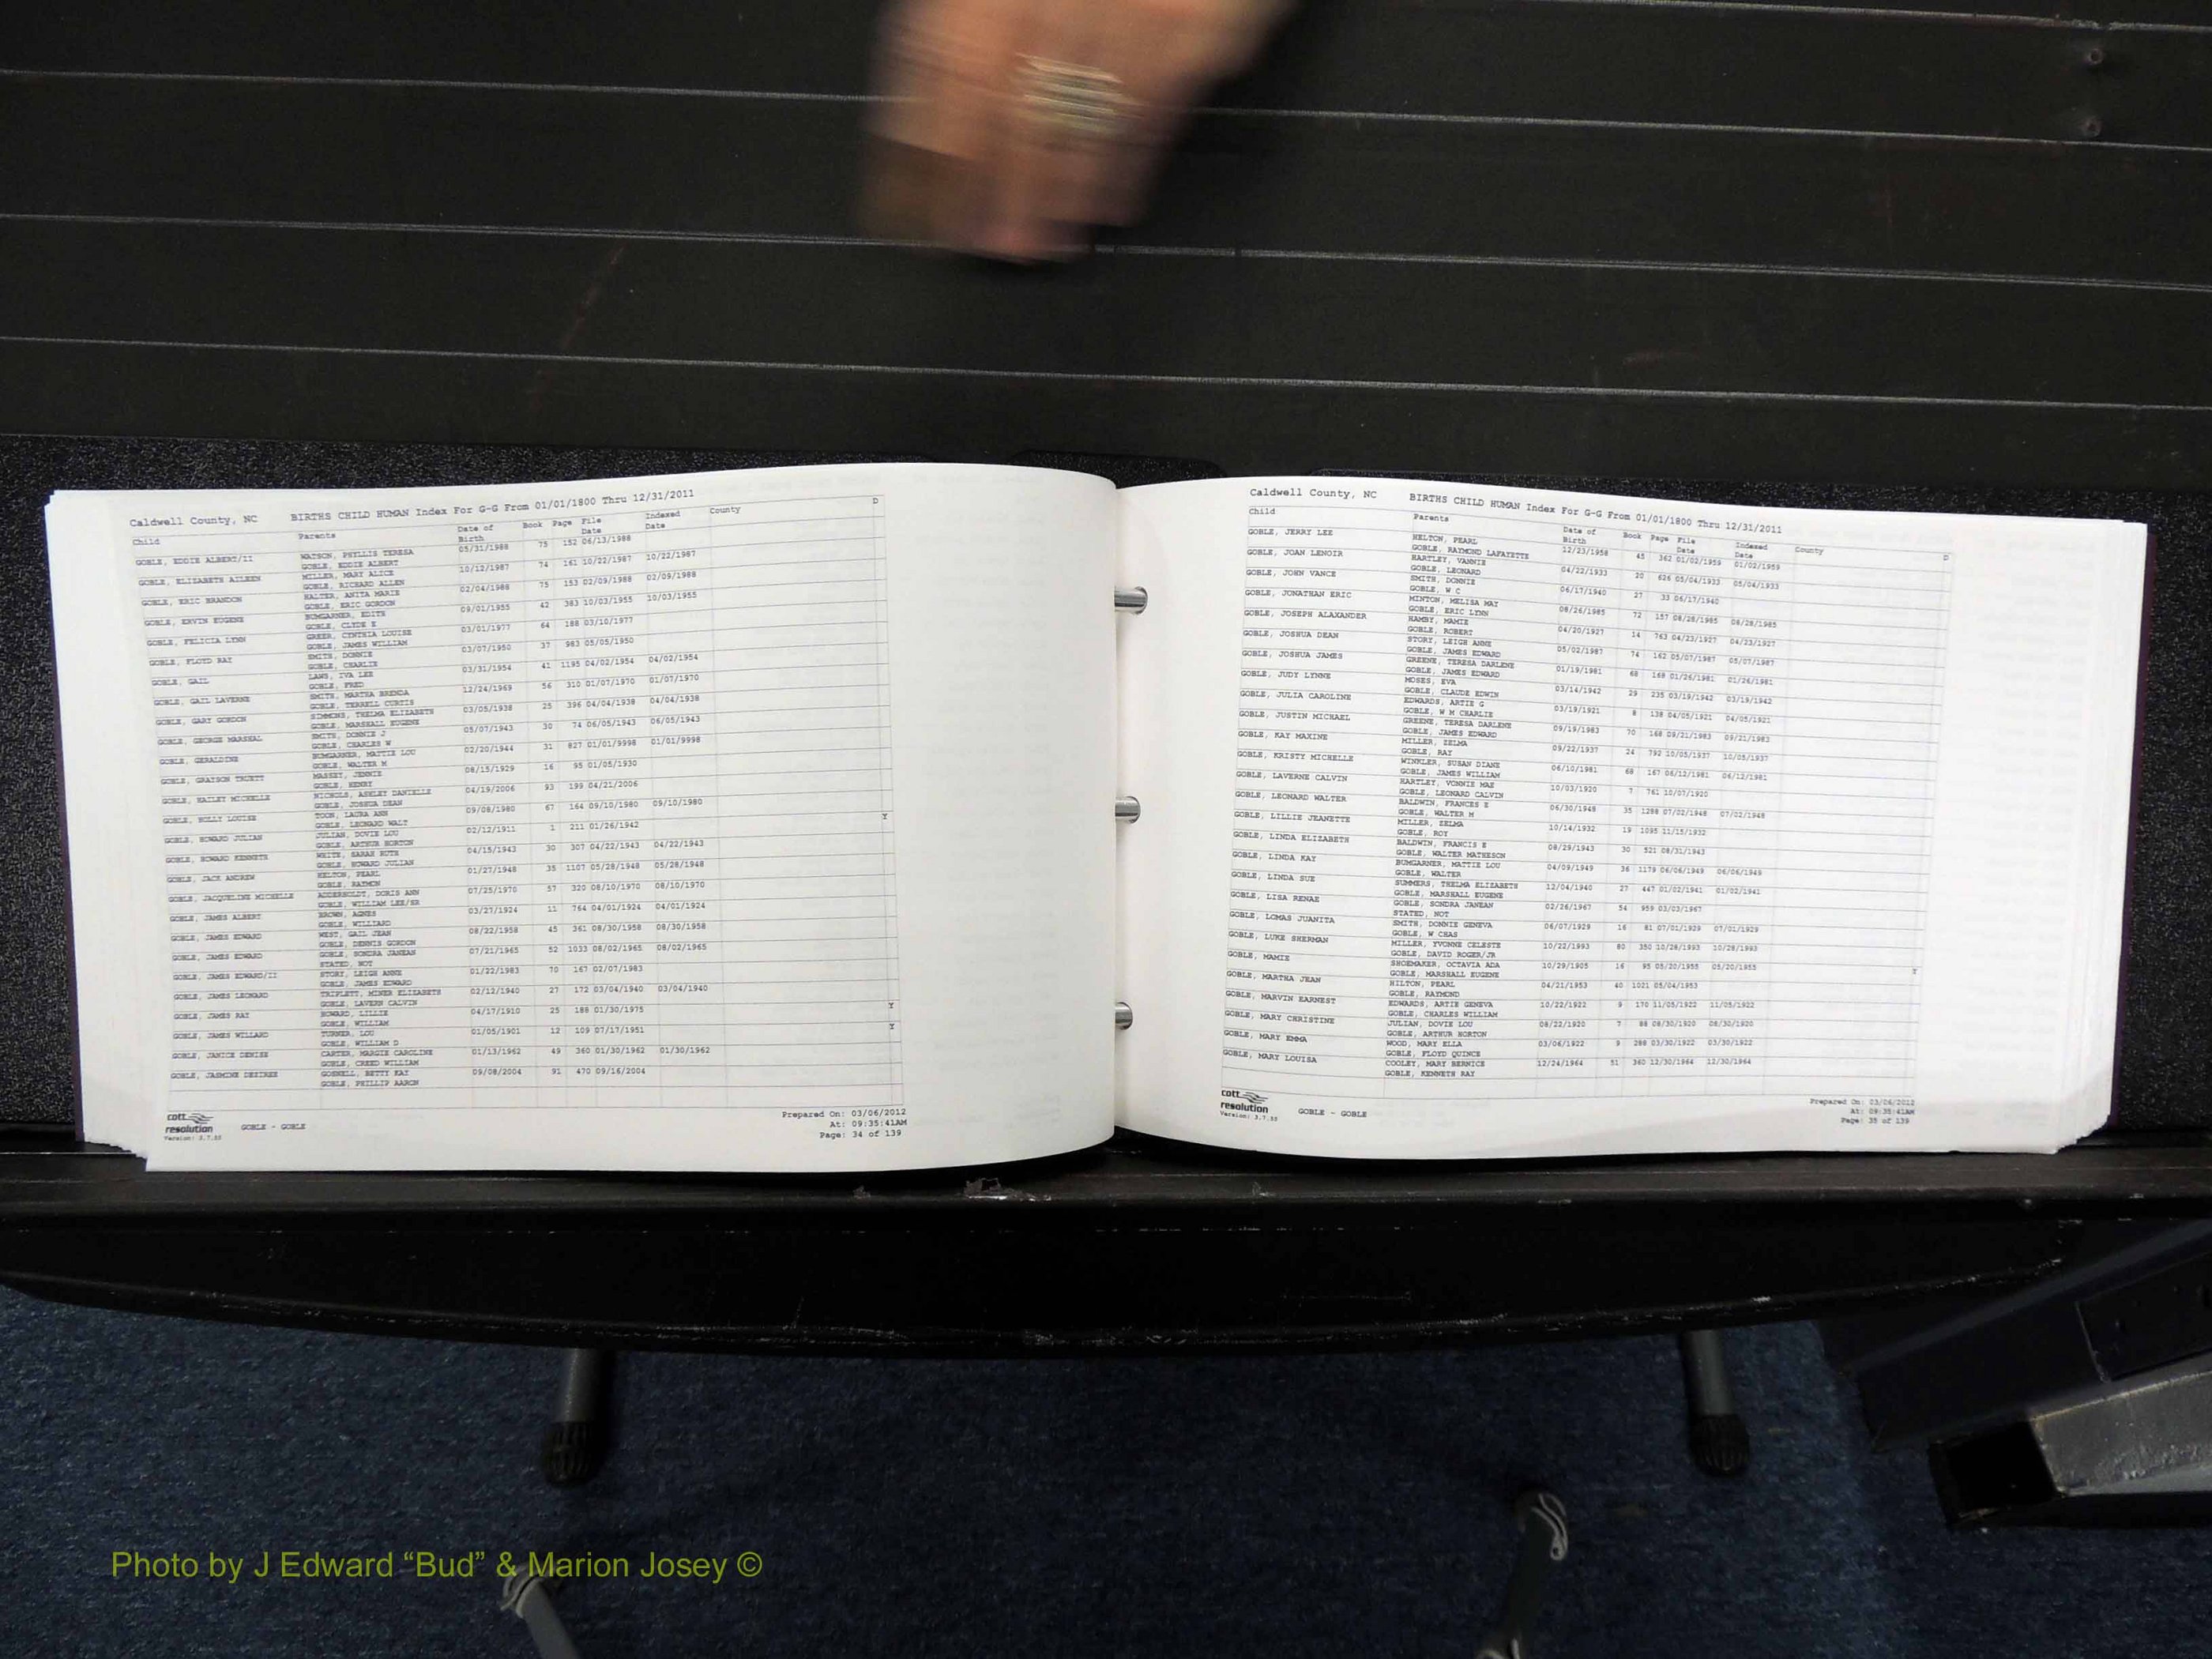 Caldwell County, NC BIRTHS CHILD HUMAN Index For G-G From 01/01/1800 Thru 12/31/2011
Child Parents Date of Birth Book Page File Date Indexed Date County D
GOBLE, EDDIE ALBERT/II WATSON, PHYLLIS TERESA 05/31/1988 75 152 06/13/1988
GOBLE, EDDIE ALBERT
GOBLE, ELIZABETH AILEEN MILLER, MARY ALICE 10/12/1987 74 161 10/22/1987 10/22/1987
GOBLE, RICHARD ALLEN
GOBLE, ERIC BRANDON HALTER, ANITA MARIE 02/04/1988 75 153 02/09/1988 02/09/1988
GOBLE, ERIC GORDON
GOBLE, ERVIN EUGENE BUMGARNER, EDITH 09/01/1955 42 383 10/03/1955 10/03/1955
GOBLE, CLYDE E
GOBLE, FELICIA LYNN GREER, CYNTHIA LOUISE 03/01/1977 64 188 03/10/1977
GOBLE, JAMES WILLIAM
GOBLE, FLOYD RAY SMITH, DONNIE 03/07/1950 37 983 05/05/1950
GOBLE, CHARLIE
GOBLE, GAIL LAWS, IVA LEE 03/31/1954 41 1195 04/02/1954 04/02/1954
GOBLE, FRED
GOBLE, GAIL LAVERNE SMITH, MARTHA BRENDA 12/24/1969 56 310 01/07/1970 01/07/1970
GOBLE, TERRELL CURTIS
GOBLE, GARY GORDON SIMMONS, THELMA ELIZABETH 03/05/1938 25 396 04/04/1938 04/04/1938
GOBLE, MARSHALL EUGENE
GOBLE, GEORGE MARSHAL SMITH, DONNIE J 05/07/1943 30 74 06/05/1943 06/05/1943
GOBLE, CHARLES W
GOBLE, GERALDINE BUMGARNER, MATTIE LOU 02/20/1944 31 827 01/01/9998 01/01/9998
GOBLE, WALTER M
GOBLE, GRAYSON TRUETT MASSEY, JENNIE 08/15/1929 16 95 01/05/1930
GOBLE, HENRY
GOBLE, HAILEY MICHELLE NICHOLS, ASHLEY DANIELLE 04/19/2006 93 199 04/21/2006
GOBLE, JOSHUA DEAN
GOBLE, HOLLY LOUISE TOON, LAURA ANN 09/08/1980 67 164 09/10/1980 09/10/1980
GOBLE, LEONARD WALT
GOBLE, HOWARD JULIAN JULIAN, DOVIE LOU 02/12/1911 1 211 01/26/1942 Y
GOBLE, ARTHUR HORTON
GOBLE, HOWARD KENNETH WHITE, SARAH RUTH 04/15/1943 30 307 04/22/1943 04/22/1943
GOBLE, HOWARD JULIAN
GOBLE, JACK ANDREW HELTON, PEARL 01/27/1948 35 1107 05/28/1948 05/28/1948
GOBLE, RAYMON
GOBLE, JACQUELINE MICHELLE ADDERHOLDT, DORIS ANN 07/25/1970 57 320 08/10/1970 08/10/1970
GOBLE, WILLIAM LEE/SR
GOBLE, JAMES ALBERT BROWN, AGNES 03/27/1924 11 764 04/01/1924 04/01/1924
GOBLE, WILLIARD
GOBLE, JAMES EDWARD WEST, GAIL JEAN 08/22/1958 45 361 08/30/1958 08/30/1958
GOBLE, DENNIS GORDON
GOBLE, JAMES EDWARD GOBLE, SONDRA JANEAN 07/21/1965 52 1033 08/02/1965 08/02/1965
STATED, NOT
GOBLE, JAMES EDWARD/II STORY, LEIGH ANNE 01/22/1983 70 167 02/07/1983
GOBLE, JAMES EDWARD
GOBLE, JAMES LEONARD TRIPLETT, MINER ELIZABETH 02/12/1940 27 172 03/04/1940 03/04/1940
GOBLE, LAVERN CALVIN
GOBLE, JAMES RAY HOWARD, LILLIE 04/17/1910 25 188 01/30/1975 Y
GOBLE, WILLIAM
GOBLE, JAMES WILLARD TURNER, LOU 01/05/1901 12 109 07/17/1951 Y
GOBLE, WILLIAM D
GOBLE, JANICE DENISE CARTER, MARGIE CAROLINE 01/13/1962 49 360 01/30/1962 01/30/1962
GOBLE, CREED WILLIAM
GOBLE, JASMINE DESIREE GOSNELL, BETTY KAY 09/08/2004 91 470 09/16/2004
GOBLE, PHILLIP AARON
cott resolution
Version: 3.7.55
GOBLE - GOBLE
Prepared On: 03/06/2012
At: 09:35:41AM
Page: 34 of 139
Caldwell County, NC BIRTHS CHILD HUMAN Index For G-G From 01/01/1800 Thru 12/31/2011
Child Parents Date of Birth Book Page File Date Indexed Date County D
GOBLE, JERRY LEE HELTON, PEARL 12/23/1958 45 362 01/02/1959 01/02/1959
GOBLE, RAYMOND LAFAYETTE
GOBLE, JOAN LENOIR HARTLEY, VANNIE 04/22/1933 20 626 05/04/1933 05/04/1933
GOBLE, LEONARD
GOBLE, JOHN VANCE SMITH, DONNIE 06/17/1940 27 33 06/17/1940
GOBLE, W C
GOBLE, JONATHAN ERIC MINTON, MELISA MAY 08/26/1985 72 157 08/28/1985 08/28/1985
GOBLE, ERIC LYNN
GOBLE, JOSEPH ALAXANDER HAMBY, MAMIE 04/20/1927 14 763 04/23/1927 04/23/1927
GOBLE, ROBERT
GOBLE, JOSHUA DEAN STORY, LEIGH ANNE 05/02/1987 74 162 05/07/1987 05/07/1987
GOBLE, JAMES EDWARD
GOBLE, JOSHUA JAMES GREENE, TERESA DARLENE 01/19/1981 68 168 01/26/1981 01/26/1981
GOBLE, JAMES EDWARD
GOBLE, JUDY LYNNE MOSES, EVA 03/14/1942 29 235 03/19/1942 03/19/1942
GOBLE, CLAUDE EDWIN
GOBLE, JULIA CAROLINE EDWARDS, ARTIE G 03/19/1921 8 138 04/05/1921 04/05/1921
GOBLE, W M CHARLIE
GOBLE, JUSTIN MICHAEL GREENE, TERESA DARLENE 09/19/1983 70 168 09/21/1983 09/21/1983
GOBLE, JAMES EDWARD
GOBLE, KAY MAXINE MILLER, ZELMA 09/22/1937 24 792 10/05/1937 10/05/1937
GOBLE, RAY
GOBLE, KRISTY MICHELLE WINKLER, SUSAN DIANE 06/10/1981 68 167 06/12/1981 06/12/1981
GOBLE, JAMES WILLIAM
GOBLE, LAVERNE CALVIN HARTLEY, VONNIE MAE 10/03/1920 7 761 10/07/1920
GOBLE, LEONARD CALVIN
GOBLE, LEONARD WALTER BALDWIN, FRANCES E 06/30/1948 35 1288 07/02/1948 07/02/1948
GOBLE, WALTER M
GOBLE, LILLIE JEANETTE MILLER, ZELMA 10/14/1932 19 1095 11/15/1932
GOBLE, ROY
GOBLE, LINDA ELIZABETH BALDWIN, FRANCIS E 08/29/1943 30 521 08/31/1943
GOBLE, WALTER MATHESON
GOBLE, LINDA KAY BUMGARNER, MATTIE LOU 04/09/1949 36 1179 06/06/1949 06/06/1949
GOBLE, WALTER
GOBLE, LINDA SUE SUMMERS, THELMA ELIZABETH 12/04/1940 27 447 01/02/1941 01/02/1941
GOBLE, MARSHALL EUGENE
GOBLE, LISA RENAE GOBLE, SONDRA JANEAN 02/26/1967 54 959 03/03/1967
STATED, NOT
GOBLE, LOMAS JUANITA SMITH, DONNIE GENEVA 06/07/1929 16 81 07/01/1929 07/01/1929
GOBLE, W CHAS
GOBLE, LUKE SHERMAN MILLER, YVONNE CELESTE 10/22/1993 80 350 10/28/1993 10/28/1993
GOBLE, DAVID ROGER/JR
GOBLE, MAMIE SHOEMAKER, OCTAVIA ADA 10/29/1905 16 95 05/20/1955 05/20/1955 Y
GOBLE, MARSHALL EUGENE
GOBLE, MARTHA JEAN HILTON, PEARL 04/21/1953 40 1021 05/04/1953
GOBLE, RAYMOND
GOBLE, MARVIN EARNEST EDWARDS, ARTIE GENEVA 10/22/1922 9 170 11/05/1922 11/05/1922
GOBLE, CHARLES WILLIAM
GOBLE, MARY CHRISTINE JULIAN, DOVIE LOU 08/22/1920 7 88 08/30/1920 08/30/1920
GOBLE, ARTHUR HORTON
GOBLE, MARY EMMA WOOD, MARY ELLA 03/06/1922 9 288 03/30/1922 03/30/1922
GOBLE, FLOYD QUINCE
GOBLE, MARY LOUISA COOLEY, MARY BERNICE 12/24/1964 51 360 12/30/1964 12/30/1964
GOBLE, KENNETH RAY
cott resolution
Version: 3.7.55
GOBLE - GOBLE
Prepared On: 03/06/2012
At: 09:35:41AM
Page: 35 of 139
Photo by J Edward “Bud” & Marion Josey ©